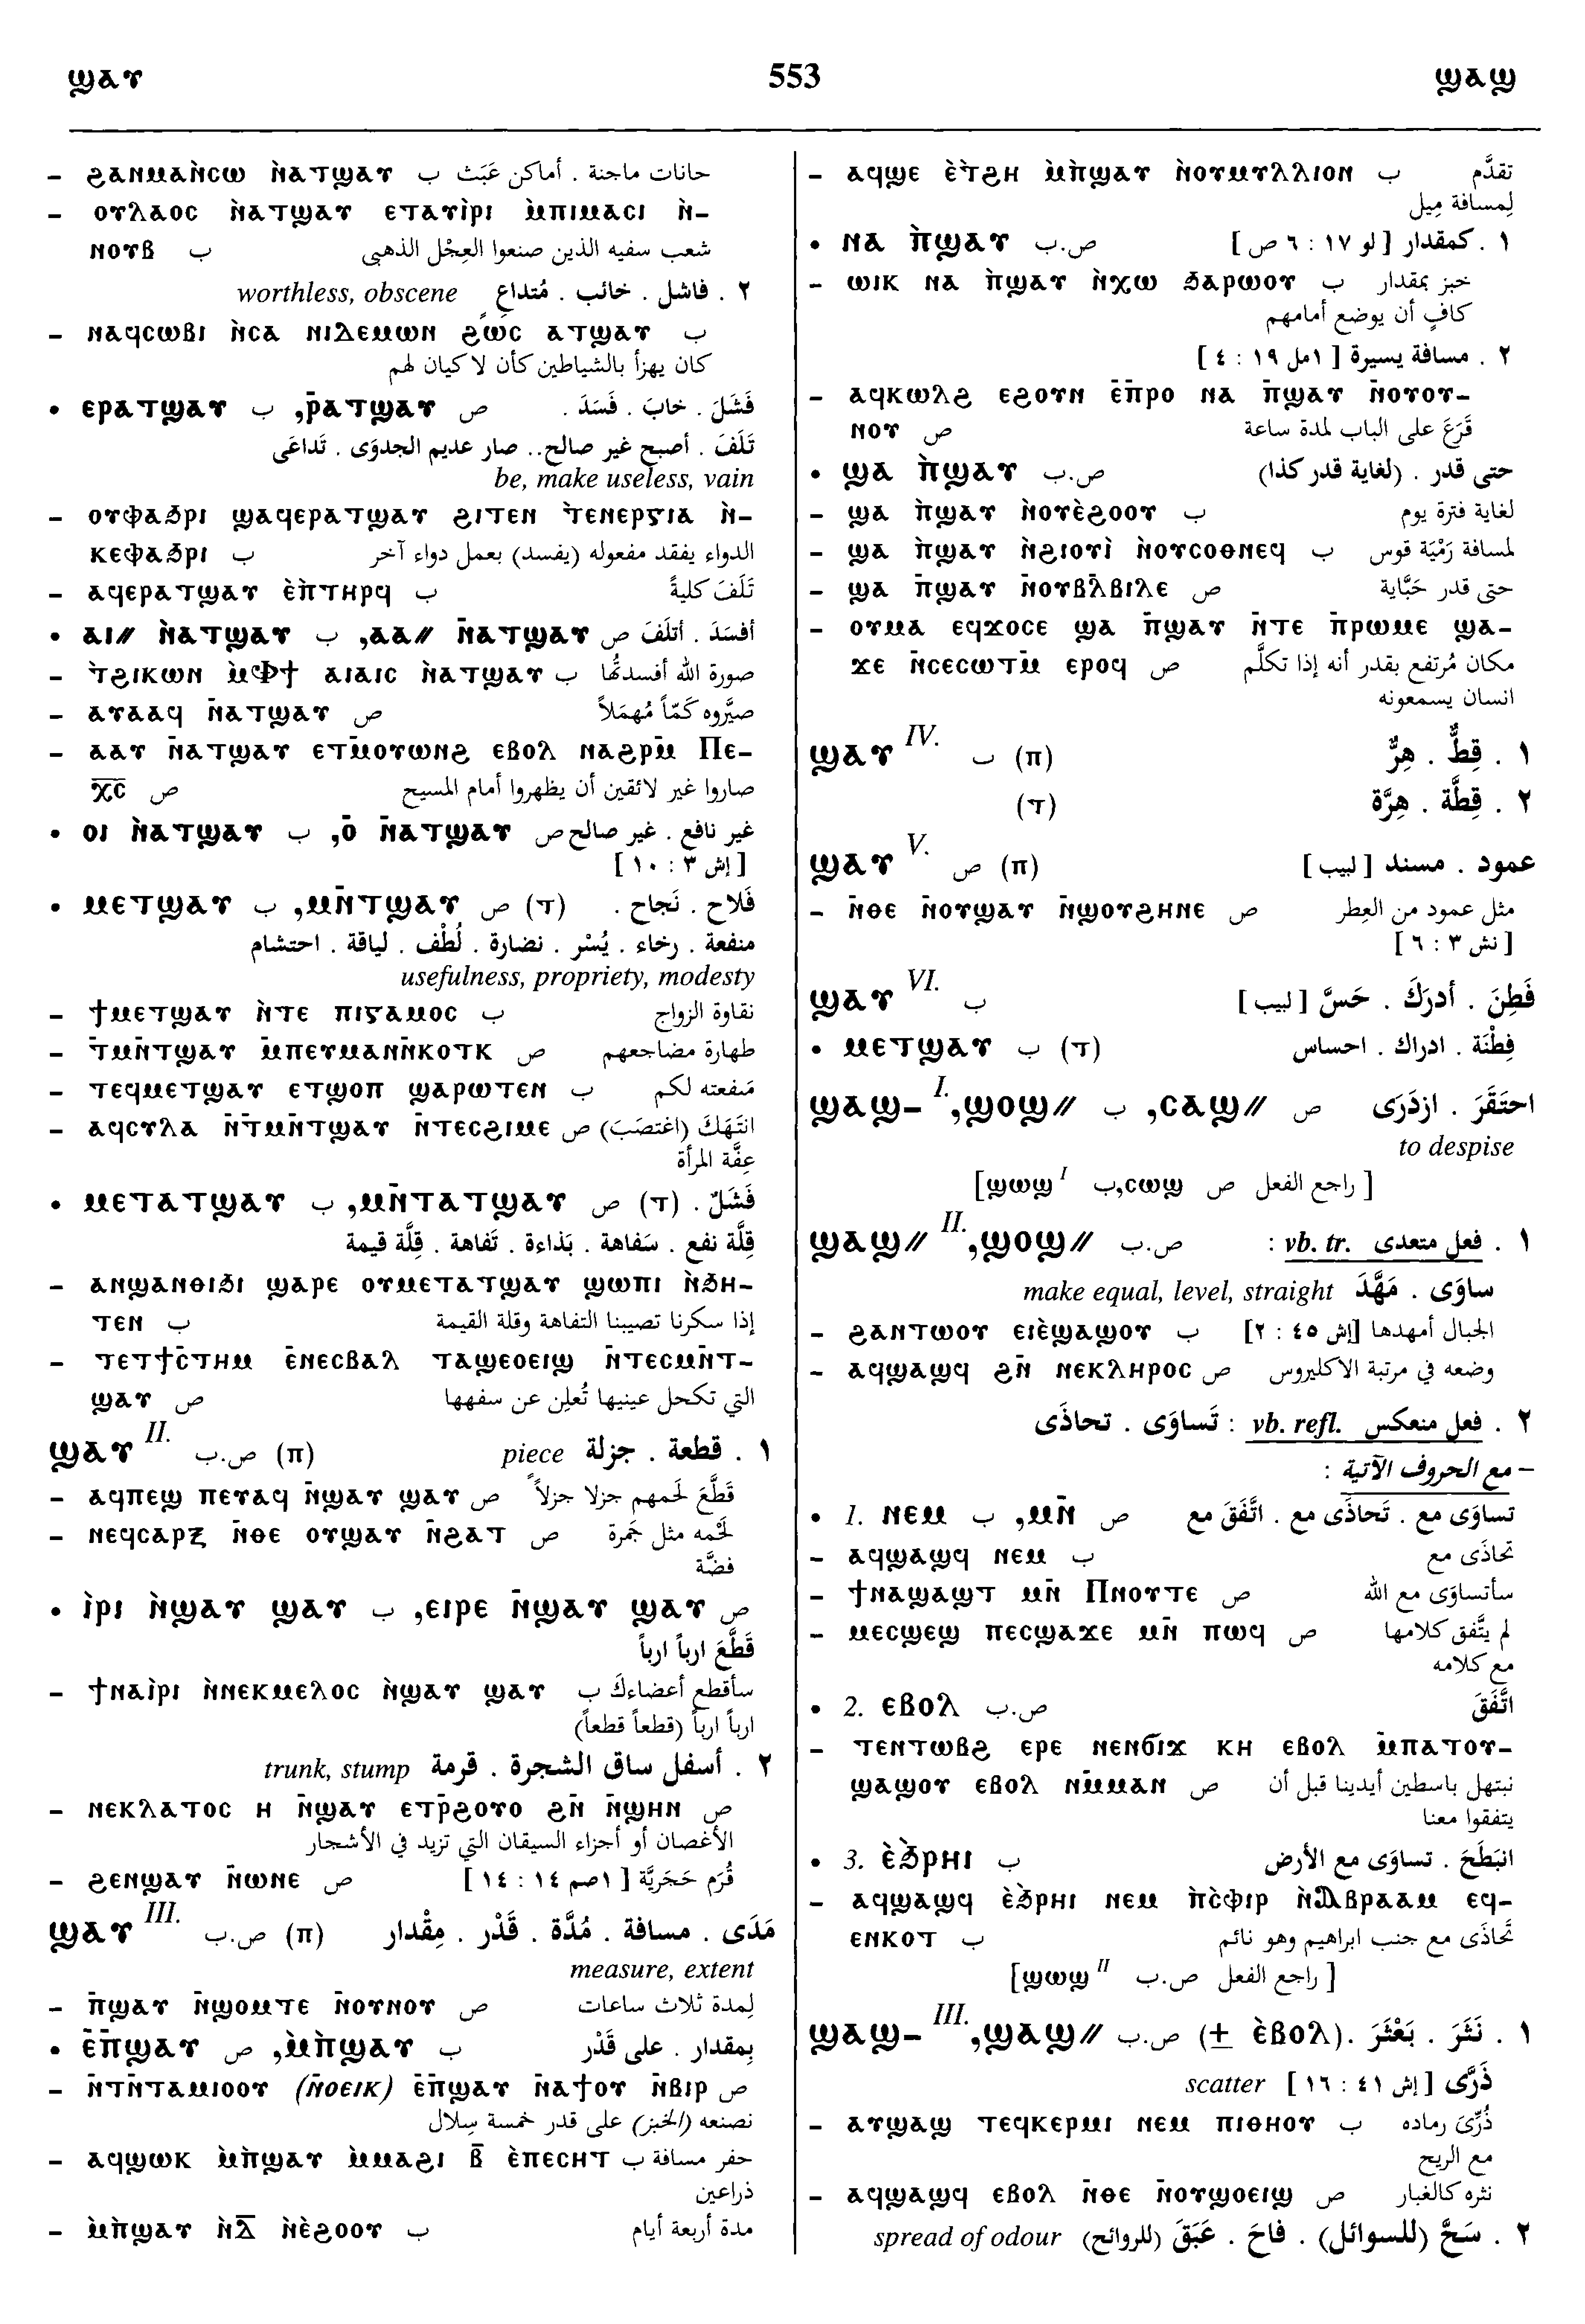 ϣⲁⲩ 553 ϣⲁϣ
– ϩⲁⲛⲙⲁⲛ̀ⲥⲱ ⲛ̀ⲁⲧϣⲁⲩ ب حانات ماجنة . أماكن عَبَث
– ⲟⲩⲗⲁⲟⲥ ⲛ̀ⲁⲧϣⲁⲩ ⲉⲧⲁⲩⲓ̀ⲣⲓ ⲙ̀ⲡⲓⲙⲁⲥⲓ ⲛ̀-
ⲛⲟⲩⲃ ب شعب سفيه الذين صنعوا العِجْل الذهبى
٢ . فاشل . خائب . مُتداعٍ worthless, obscene
– ⲛⲁϥⲥⲱⲃⲓ ⲛ̀ⲥⲁ ⲛⲓⲇⲉⲙⲱⲛ ϩⲱⲥ ⲁⲧϣⲁⲩ ب
كان يهزأ بالشياطين كأن لا كيان لهم
• ⲉⲣⲁⲧϣⲁⲩ ب ,ⲣ̄ⲁⲧϣⲁⲩ ص فَشَلَ . خابَ . فَسَدَ .
تَلَفَ . أصبح غير صالح.. صار عديم الجدوَى . تَداعَى
be, make useless, vain
– ⲟⲩⲫⲁϧⲣⲓ ϣⲁϥⲉⲣⲁⲧϣⲁⲩ ϩⲓⲧⲉⲛ ⲧ̀ⲉⲛⲉⲣⲅⲓⲁ ⲛ̀-
ⲕⲉⲫⲁϧⲣⲓ ب الدواء يفقد مفعوله (يفسد) بعمل دواء آخر
– ⲁϥⲉⲣⲁⲧϣⲁⲩ ⲉ̀ⲡⲧⲏⲣϥ ب تَلَفَ كليةً
• ⲁⲓ⫽ ⲛ̀ⲁⲧϣⲁⲩ ب ,ⲁⲁ⫽ ⲛ̄ⲁⲧϣⲁⲩ ص أفسَدَ . أتلَفَ
– ⲧ̀ϩⲓⲕⲱⲛ ⲙ̀ⲫϯ ⲁⲓⲁⲓⲥ ⲛ̀ⲁⲧϣⲁⲩ ب صورة الله أفسدتُها
– ⲁⲩⲁⲁϥ ⲛ̄ⲁⲧϣⲁⲩ ص صيَّروه كَمّاً مُهمَلاً
– ⲁⲁⲩ ⲛ̄ⲁⲧϣⲁⲩ ⲉⲧⲙ̄ⲟⲩⲱⲛϩ ⲉⲃⲟⲗ ⲛⲁϩⲣⲙ̄ Ⲡⲉ-
ⲭ̅ⲥ̅ ص صاروا غير لائقين أن يظهروا أمام المسيح
• ⲟⲓ ⲛ̀ⲁⲧϣⲁⲩ ب ,ⲟ̄ ⲛ̄ⲁⲧϣⲁⲩ ص غير نافع . غير صالح
[ إش ٣ : ١٠ ]
• ⲙⲉⲧϣⲁⲩ ب ,ⲙⲛ̄ⲧϣⲁⲩ ص (ⲧ) فَلاح . نَجاح .
منفعة . رخاء . يُسْر . نضارة . لُطْف . لياقة . احتشام
usefulness, propriety, modesty
– ϯⲙⲉⲧϣⲁⲩ ⲛ̀ⲧⲉ ⲡⲓⲅⲁⲙⲟⲥ ب نقاوة الزواج
– ⲧ̄ⲙⲛ̄ⲧϣⲁⲩ ⲙ̄ⲡⲉⲩⲙⲁⲛⲛ̄ⲕⲟⲧⲕ ص طهارة مضاجعهم
– ⲧⲉϥⲙⲉⲧϣⲁⲩ ⲉⲧϣⲟⲡ ϣⲁⲣⲱⲧⲉⲛ ب مَنفعته لكم
– ⲁϥⲥⲩⲗⲁ ⲛ̄ⲧⲙⲛ̄ⲧϣⲁⲩ ⲛ̄ⲧⲉⲥϩⲓⲙⲉ ص انتَهَكَ (اغتصَبَ)
عِفَّة المرأة
• ⲙⲉⲧⲁⲧϣⲁⲩ ب ,ⲙⲛ̄ⲧⲁⲧϣⲁⲩ ص (ⲧ) فَشَلٌ .
قِلَّة نفع . سَفاهة . بَذاءة . تَفاهة . قِلَّة قيمة
– ⲁⲛϣⲁⲛⲑⲓϧⲓ ϣⲁⲣⲉ ⲟⲩⲙⲉⲧⲁⲧϣⲁⲩ ϣⲱⲡⲓ ⲛ̀ϧⲏ-
ⲧⲉⲛ ب إذا سكرنا تصيبنا التفاهة وقلة القيمة
– ⲧⲉⲧϯⲥ̄ⲧⲏⲙ ⲉ̄ⲛⲉⲥⲃⲁⲗ ⲧⲁϣⲉⲟⲉⲓϣ ⲛ̄ⲧⲉⲥⲙⲛ̄ⲧ-
ϣⲁⲩ ص التي تكحل عينيها تُعلِن عن سفهها
ϣⲁⲩ II. ص.ب (ⲡ) ١ . قطعة . جزلة piece
– ⲁϥⲡⲉϣ ⲡⲉⲩⲁϥ ⲛ̄ϣⲁⲩ ϣⲁⲩ ص قَطَّعَ لَحمهم جزلا جزلاً
– ⲛⲉϥⲥⲁⲣⲝ ⲛ̄ⲑⲉ ⲟⲩϣⲁⲩ ⲛ̄ϩⲁⲧ ص لَحْمه مثل جَمرة
فضَّة
• ⲓ̀ⲣⲓ ⲛ̀ϣⲁⲩ ϣⲁⲩ ب ,ⲉⲓⲣⲉ ⲛ̄ϣⲁⲩ ϣⲁⲩ ص
قَطَّعَ ارباً ارباً
– ϯⲛⲁⲓ̀ⲣⲓ ⲛ̀ⲛⲉⲕⲙⲉⲗⲟⲥ ⲛ̀ϣⲁⲩ ϣⲁⲩ ب سأقطع أعضاءكَ
ارباً ارباً (قطعاً قطعاً)
٢ . أسفل ساق الشجرة . قرمة trunk, stump
– ⲛⲉⲕⲗⲁⲧⲟⲥ ⲏ ⲛ̄ϣⲁⲩ ⲉⲧⲣ̄ϩⲟⲩⲟ ϩⲛ̄ ⲛ̄ϣⲏⲛ ص
الأغصان أو أجزاء السيقان التي تزيد في الأشجار
– ϩⲉⲛϣⲁⲩ ⲛ̄ⲱⲛⲉ ص قُرَم حَجَريَّة [ ١صم ١٤ : ١٤ ]
ϣⲁⲩ III. ص.ب (ⲡ) مَدَى . مسافة . مُدَّة . قَدْر . مِقْدار
measure, extent
– ⲡ̄ϣⲁⲩ ⲛ̄ϣⲟⲙⲧⲉ ⲛ̄ⲟⲩⲛⲟⲩ ص لِمدة ثلاث ساعات
• ⲉ̄ⲡ̄ϣⲁⲩ ص ,ⲙ̀ⲡ̀ϣⲁⲩ ب بِمقدار . على قَدْر
– ⲛ̄ⲧⲛ̄ⲧⲁⲙⲓⲟⲟⲩ (ⲛ̄ⲟⲉⲓⲕ) ⲉ̄ⲡ̄ϣⲁⲩ ⲛ̄ⲁϯⲟⲩ ⲛ̄ⲃⲓⲣ ص
نصنعه (الخبز) على قدر خمسة سِلال
– ⲁϥϣⲱⲕ ⲙ̀ⲡ̀ϣⲁⲩ ⲙ̀ⲙⲁϩⲓ ⲃ̄ ⲉ̀ⲡⲉⲥⲏⲧ ب حفر مسافة
ذراعين
– ⲙ̀ⲡ̀ϣⲁⲩ ⲛ̀ⲇ̄ ⲛ̀ⲉ̀ϩⲟⲟⲩ ب مدة أربعة أيام
– ⲁϥϣⲉ ⲉ̀ⲧϩⲏ ⲙ̀ⲡ̀ϣⲁⲩ ⲛ̀ⲟⲩⲙⲩⲗⲗⲓⲟⲛ ب تقدَّم
لِمسافة مِيل
• ⲛⲁ ⲡ̀ϣⲁⲩ ص.ب ١ . كمقدار [ لو ١٧ : ٦ ص ]
– ⲱⲓⲕ ⲛⲁ ⲡ̀ϣⲁⲩ ⲛ̀ⲭⲱ ϧⲁⲣⲱⲟⲩ ب خبز بمقدار
كافٍ أن يوضع أمامهم
٢ . مسافة يسيرة [ ١مل ١٩ : ٤ ]
– ⲁϥⲕⲱⲗϩ ⲉϩⲟⲩⲛ ⲉ̄ⲡ̄ⲣⲟ ⲛⲁ ⲡ̄ϣⲁⲩ ⲛ̄ⲟⲩⲟⲩ-
ⲛⲟⲩ ص قَرَعَ على الباب لمدة ساعة
• ϣⲁ ⲡ̀ϣⲁⲩ ص.ب حتى قدر . (لغاية قدر كذا)
– ϣⲁ ⲡ̀ϣⲁⲩ ⲛ̀ⲟⲩⲉ̀ϩⲟⲟⲩ ب لغاية فترة يوم
– ϣⲁ ⲡ̀ϣⲁⲩ ⲛ̀ϩⲓⲟⲩⲓ̀ ⲛ̀ⲟⲩⲥⲟⲑⲛⲉϥ ب لمسافة رَمْيَة قوس
– ϣⲁ ⲡ̄ϣⲁⲩ ⲛ̄ⲟⲩⲃⲗ̄ⲃⲓⲗⲉ ص حتى قدر حَبَّاية
– ⲟⲩⲙⲁ ⲉϥϫⲟⲥⲉ ϣⲁ ⲡ̄ϣⲁⲩ ⲛ̄ⲧⲉ ⲡ̄ⲣⲱⲙⲉ ϣⲁ-
ϫⲉ ⲛ̄ⲥⲉⲥⲱⲧⲙ̄ ⲉⲣⲟϥ ص مكان مُرتفع بقدر أنه إذا تكلَّم
انسان يسمعونه
ϣⲁⲩ IV. ب (ⲡ) ١ . قِطٌّ . هِرٌّ
(ⲧ) ٢ . قِطَّة . هِرَّة
ϣⲁⲩ V. ص (ⲡ) عمود . مسند [ لبيب ]
– ⲛ̄ⲑⲉ ⲛ̄ⲟⲩϣⲁⲩ ⲛ̄ϣⲟⲩϩⲏⲛⲉ ص مثل عمود من العِطر
[ نش ٣ : ٦ ]
ϣⲁⲩ VI. ب فَطِنَ . أدرَكَ . حَسَّ [ لبيب ]
• ⲙⲉⲧϣⲁⲩ ب (ⲧ) فِطْنَة . ادراك . احساس
ϣⲁϣ- I. ,ϣⲟϣ⫽ ب ,ⲥⲁϣ⫽ ص احتَقَرَ . ازدَرَى
to despise
[ راجع الفعل ص ⲥⲱϣ,ب ϣⲱϣ I ]
ϣⲁϣ⫽ II. ,ϣⲟϣ⫽ ص.ب ١ . فعل متعدى vb. tr. :
ساوَى . مَهَّدَ make equal, level, straight
– ϩⲁⲛⲧⲱⲟⲩ ⲉⲓⲉ̀ϣⲁϣⲟⲩ ب الجبال أمهدها [إش ٤٥ : ٢]
– ⲁϥϣⲁϣϥ ϩⲛ̄ ⲛⲉⲕⲗⲏⲣⲟⲥ ص وضعه في مرتبة الاكليروس
٢ . فعل منعكس vb. refl. : تَساوَى . تحاذَى
– مع الحروف الآتية :
• 1. ⲛⲉⲙ ب ,ⲙⲛ̄ ص تساوَى مع . تَحاذَى مع . اتَّفَقَ مع
– ⲁϥϣⲁϣϥ ⲛⲉⲙ ب تحاذَى مع
– ϯⲛⲁϣⲁϣⲧ ⲙⲛ̄ Ⲡⲛⲟⲩⲧⲉ ص سأتساوَى مع الله
– ⲙⲉⲥϣⲉϣ ⲡⲉⲥϣⲁϫⲉ ⲙⲛ̄ ⲡⲱϥ ص لم يتَّفق كلامها
مع كلامه
• 2. ⲉⲃⲟⲗ ص.ب اتَّفَقَ
– ⲧⲉⲛⲧⲱⲃϩ ⲉⲣⲉ ⲛⲉⲛϭⲓϫ ⲕⲏ ⲉⲃⲟⲗ ⲙ̄ⲡⲁⲧⲟⲩ-
ϣⲁϣⲟⲩ ⲉⲃⲟⲗ ⲛⲙ̄ⲙⲁⲛ ص نبتهل باسطين أيدينا قبل أن
يتفقوا معنا
• 3. ⲉ̀ϧⲣⲏⲓ ب انبَطَحَ . تساوَى مع الأرض
– ⲁϥϣⲁϣϥ ⲉ̀ϧⲣⲏⲓ ⲛⲉⲙ ⲡ̀ⲥ̀ⲫⲓⲣ ⲛ̀Ⲁⲃⲣⲁⲁⲙ ⲉϥ-
ⲉⲛⲕⲟⲧ ب تَحاذَى مع جنب ابراهيم وهو نائم
[ راجع الفعل ص.ب ϣⲱϣ II ]
ϣⲁϣ- III. ,ϣⲁϣ⫽ ص.ب (± ⲉ̀ⲃⲟⲗ). ١ . نَثَرَ . بَعْثَرَ
ذَرَّى [ إش ٤١ : ١٦ ] scatter
– ⲁⲩϣⲁϣ ⲧⲉϥⲕⲉⲣⲙⲓ ⲛⲉⲙ ⲡⲓⲑⲏⲟⲩ ب ذُرِّىَ رماده
مع الريح
– ⲁϥϣⲁϣϥ ⲉⲃⲟⲗ ⲛ̄ⲑⲉ ⲛ̄ⲟⲩϣⲟⲉⲓϣ ص نثره كالغبار
٢ . سَحَّ (للسوائل) . فاحَ . عَبَقَ (للروائح) spread of odour